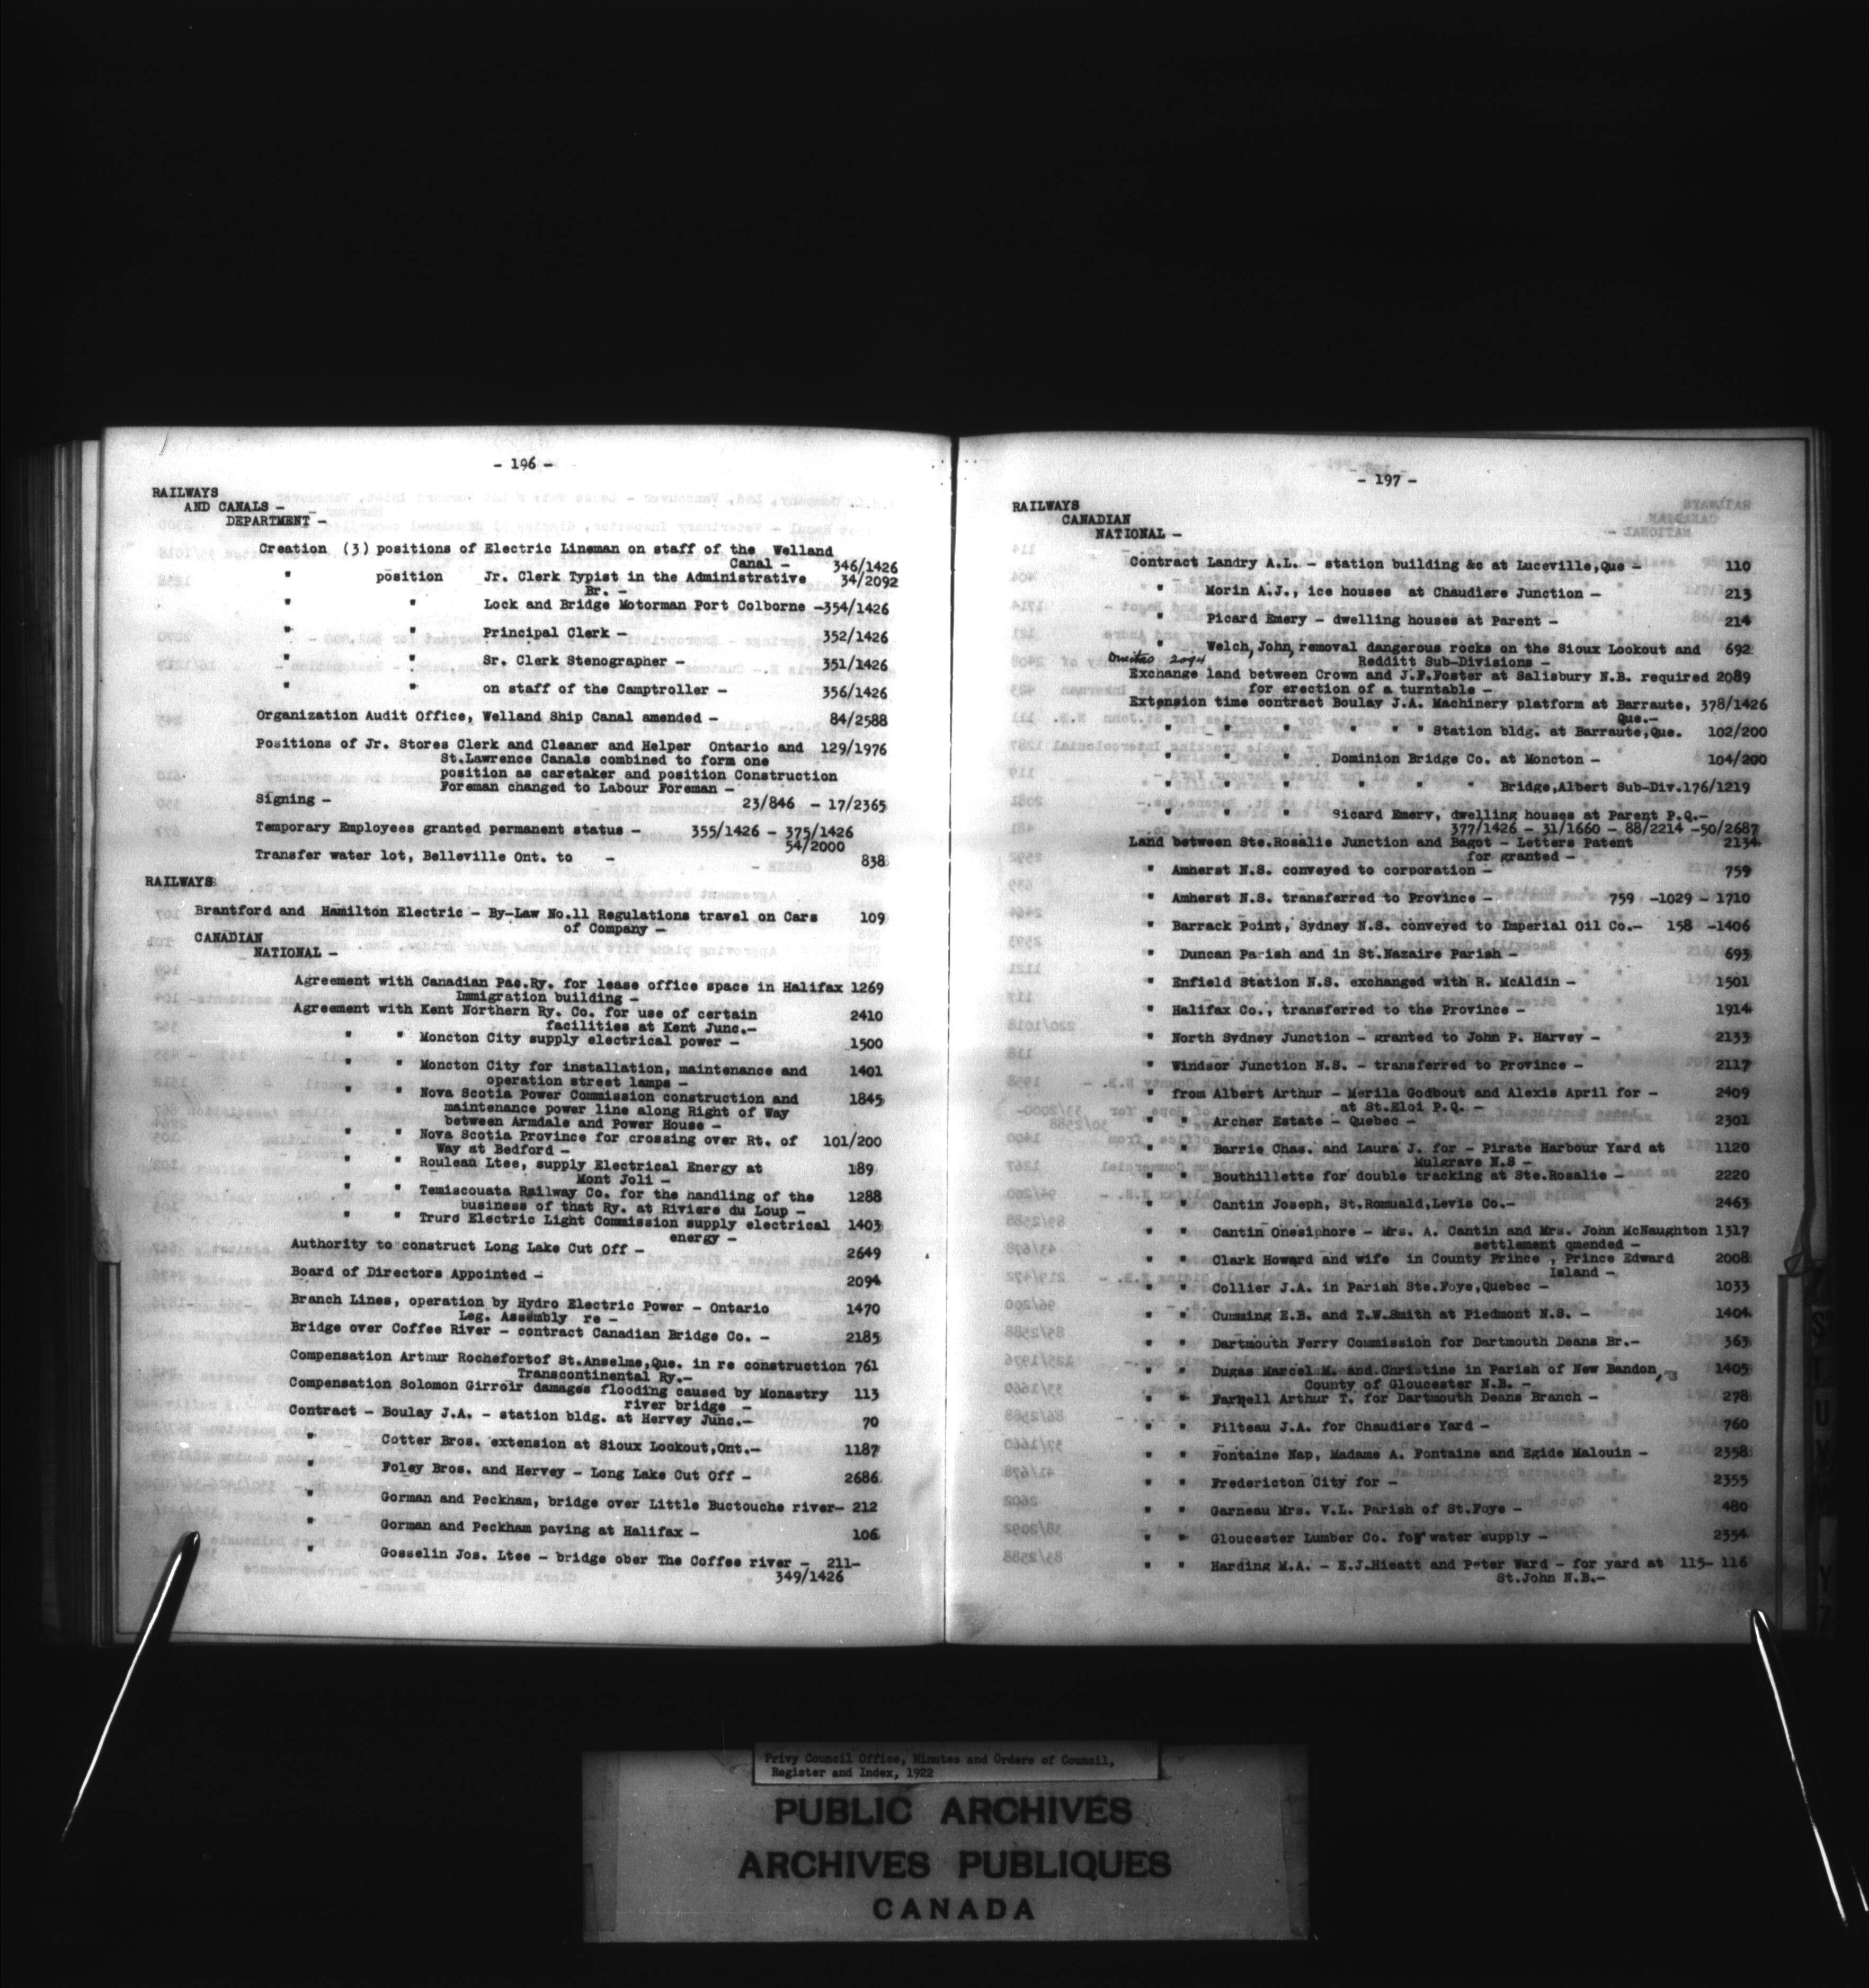 - 196 -
RAILWAYS
AND CANALS -
DEPARTMENT -
Creation (3) positions of Electric Lineman on staff of the Welland
Canal - 346/1426
" position Jr. Clerk Typist in the Administrative 34/2092
Br. -
" " Lock and Bridge Motorman Port Colborne -354/1426
" " Principal Clerk - 352/1426
" " Sr. Clerk Stenographer - 351/1426
" " on staff of the Camptroller - 356/1426
Organization Audit Office, Welland Ship Canal amended - 84/2588
Positions of Jr. Stores Clerk and Cleaner and Helper Ontario and 129/1976
St.Lawrence Canals combined to form one
position as caretaker and position Construction
Foreman changed to Labour Foreman -
Signing - 23/846 - 17/2365
Temporary Employees granted permanent status - 355/1426 - 375/1426
54/2000
Transfer water lot, Belleville Ont. to - 838
RAILWAYS
Brantford and Hamilton Electric - By-Law No.11 Regulations travel on Cars 109
of Company -
CANADIAN
NATIONAL -
Agreement with Canadian Pac.Ry. for lease office space in Halifax 1269
Immigration building -
Agreement with Kent Northern Ry. Co. for use of certain 2410
facilities at Kent Junc.-
" " Moncton City supply electrical power - 1500
" " Moncton City for installation, maintenance and 1401
operation street lamps -
" " Nova Scotia Power Commission construction and 1845
maintenance power line along Right of Way
between Armdale and Power House -
" " Nova Scotia Province for crossing over Rt. of 101/200
Way at Bedford -
" " Roulean Ltee, supply Electrical Energy at 189
Mont Joli -
" " Temiscouata Railway Co. for the handling of the 1288
business of that Ry. at Riviere du Loup -
" " Truro Electric Light Commission supply electrical 1403
energy -
Authority to construct Long Lake Cut Off - 2649
Board of Directors Appointed - 2094
Branch Lines, operation by Hydro Electric Power - Ontario 1470
Leg. Assembly re -
Bridge over Coffee River - contract Canadian Bridge Co. - 2185
Compensation Arthur Rochefortof St.Anselme,Que. in re construction 761
Transcontinental Ry.-
Compensation Solomon Girroir damages flooding caused by Monastry 113
river bridge -
Contract - Boulay J.A. - station bldg. at Hervey Junc.- 70
" Cotter Bros. extension at Sioux Lookout,Ont.- 1187
" Foley Bros. and Hervey - Long Lake Cut Off - 2686
" Gorman and Peckham, bridge over Little Buctouche river- 212
" Gorman and Peckham paving at Halifax - 106
" Gosselin Jos. Ltee - bridge ober The Coffee river - 211-
349/1426
- 197 -
RAILWAYS
CANADIAN
NATIONAL -
Contract Landry A.L. - station building &c at Luceville,Que - 110
" Morin A.J., ice houses at Chaudiere Junction - 213
" Picard Emery - dwelling houses at Parent - 214
" Welch, John, removal dangerous rocks on the Sioux Lookout and 692
2094 Redditt Sub-Divisions -
Exchange land between Crown and J.F.Foster at Salisbury N.B. required 2089
for erection of a turntable -
Extension time contract Boulay J.A. Machinery platform at Barraute, 378/1426
Que.-
" " " " " " Station bldg. at Barraute,Que. 102/200
" " " Dominion Bridge Co. at Moncton - 104/200
" " " " " " Bridge,Albert Sub-Div.176/1219
" " " Sicard Emery, dwelling houses at Parent P.Q.-
377/1426 - 31/1660 - 88/2214 -50/2687
Land between Ste.Rosalie Junction and Bagot - Letters Patent 2134
for granted -
" Amherst N.S. conveyed to corporation - 759
" Amherst N.S. transferred to Province - 759 -1029 - 1710
" Barrack Point, Sydney N.S. conveyed to Imperial Oil Co.- 158 -1406
" Duncan Parish and in St.Nazaire Parish - 693
" Enfield Station N.S. exchanged with R. McAldin - 1501
" Halifax Co., transferred to the Province - 1914
" North Sydney Junction - granted to John P. Harvey - 2133
" Windsor Junction N.S. - transferred to Province - 2117
" from Albert Arthur - Merila Godbout and Alexis April for - 2409
at St.Eloi P.Q. -
" " Archer Estate - Quebec - 2301
" " Barrie Chas. and Laura J. for - Pirate Harbour Yard at 1120
Mulgrave N.S -
" " Bouthillette for double tracking at Ste.Rosalie - 2220
" " Cantin Joseph, St.Romuald,Levis Co.- 2463
" " Cantin Onesiphore - Mrs. A. Cantin and Mrs. John McNaughton 1317
settlement qmended -
" " Clark Howard and wife in County Prince , Prince Edward 2008
Island -
" " Collier J.A. in Parish Ste.Foye,Quebec - 1033
" " Cumming E.B. and T.W.Smith at Piedmont N.S. - 1404
" " Dartmouth Ferry Commission for Dartmouth Deans Br.- 363
" " Dugas Marcel M. and Christine in Parish of New Bandon, 1405
County of Gloucester N.B. -
" " Farnell Arthur T. for Dartmouth Deans Branch - 278
" " Filteau J.A. for Chaudiere Yard - 760
" " Fontaine Nap, Madame A. Fontaine and Egide Malouin - 2358
" " Fredericton City for - 2355
" " Garneau Mrs. V.L. Parish of St.Foye - 480
" " Gloucester Lumber Co. for water supply - 2354
" " Harding M.A. - E.J.Hieatt and Peter Ward - for yard at 115- 116
St.John N.B.-
Privy Council Office, Minutes and Orders of Council,
Register and Index, 1922
PUBLIC ARCHIVES
ARCHIVES PUBLIQUES
CANADA